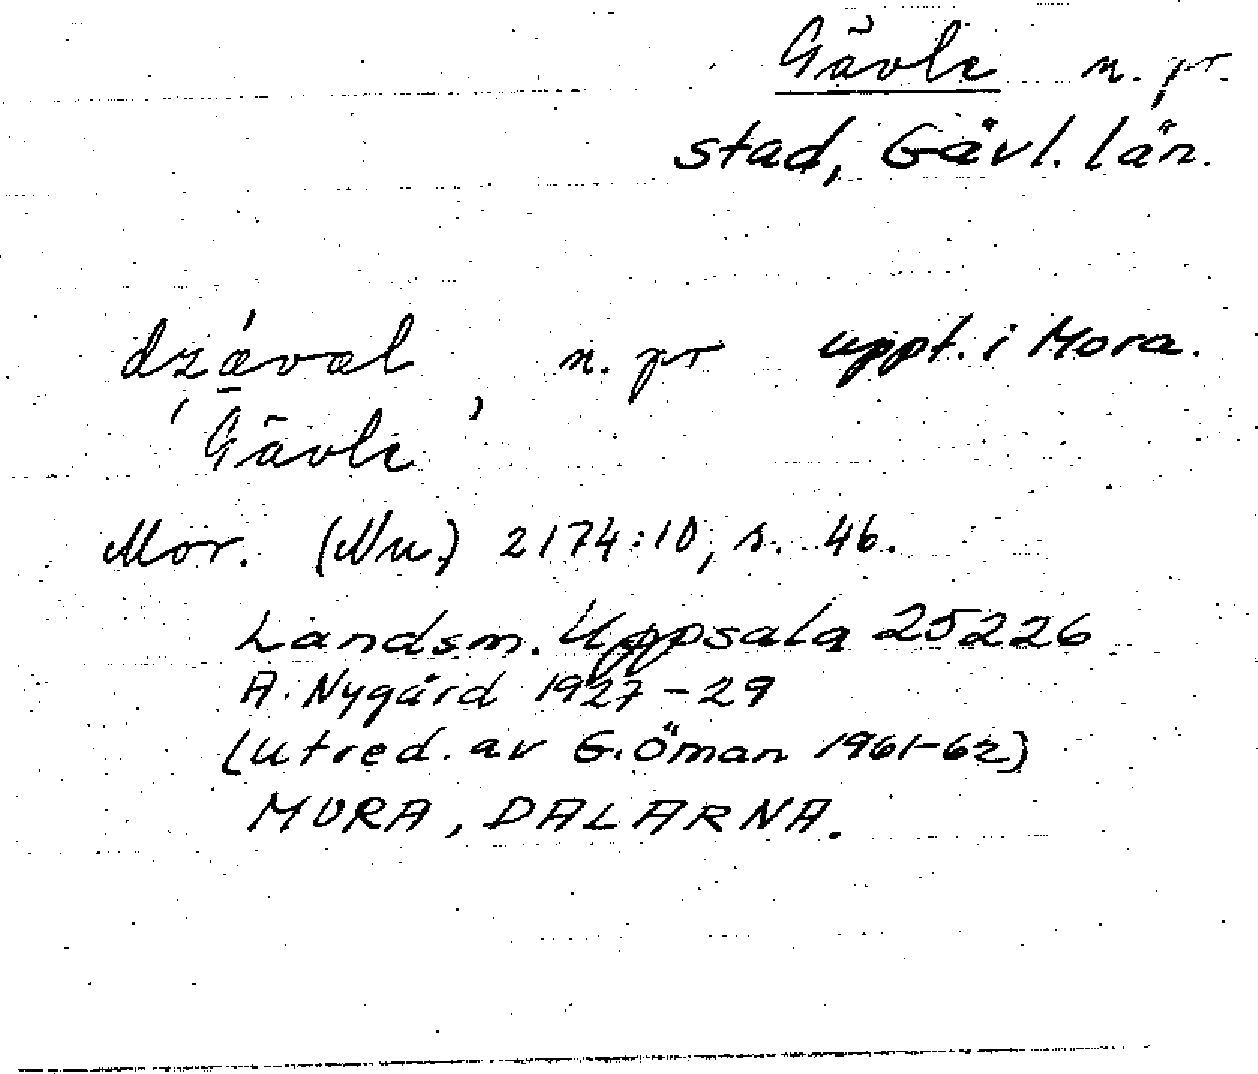 Gävle n. pr.
stad, Gävl. län.
dzǽvæl, n. pr uppt. i Mora.
'Gävle'
Mor. (Nu.) 2174:10, s. 46.
Landsm. Uppsala 25226
A. Nygård 1927-29
(utred. av G. Öman 1961-62)
MORA, DALARNA.